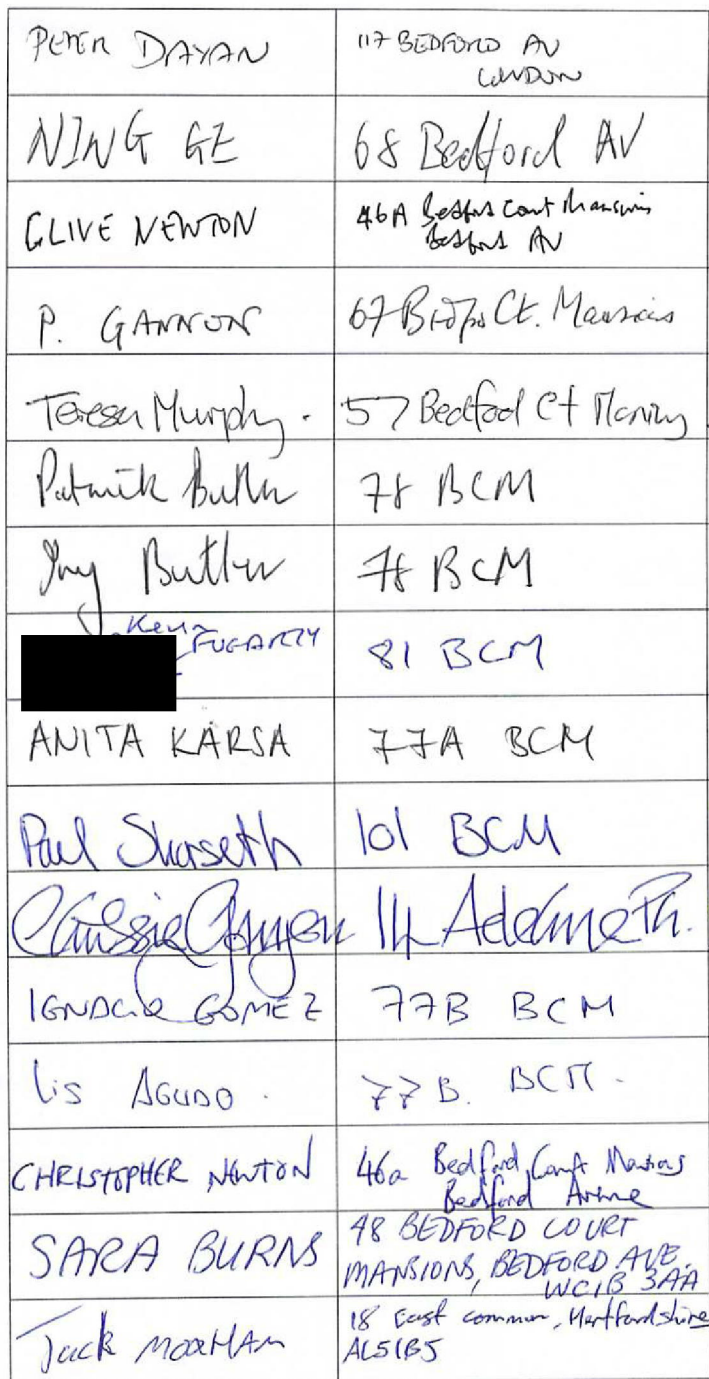 PETER DAYAN
117 BEDFORD AV
LONDON
NING GE
68 Bedford AV
CLIVE NEWTON
46A Bedford Court Mansions
Bedford AV
P. GANNON
67 Ct. Mansions
Teresa Murphy.
57 Bedford Ct
Patrick Butler
78 BCM
Butler
78 BCM
FOGARTY
81 BCM
ANITA KARSA
77A BCM
Paul Skarseth
101 BCM
14
IGNACIO GOMEZ
77B BCM
Lis AGUDO.
77 B. BCM.
CHRISTOPHER NEWTON
46a Bedford Court Mansions
Bedford Avenue
SARA BURNS
48 BEDFORD COURT
MANSIONS, BEDFORD AVE.
WC1B 3AA
Jack
18 East common, Hertfordshire
AL51BJ